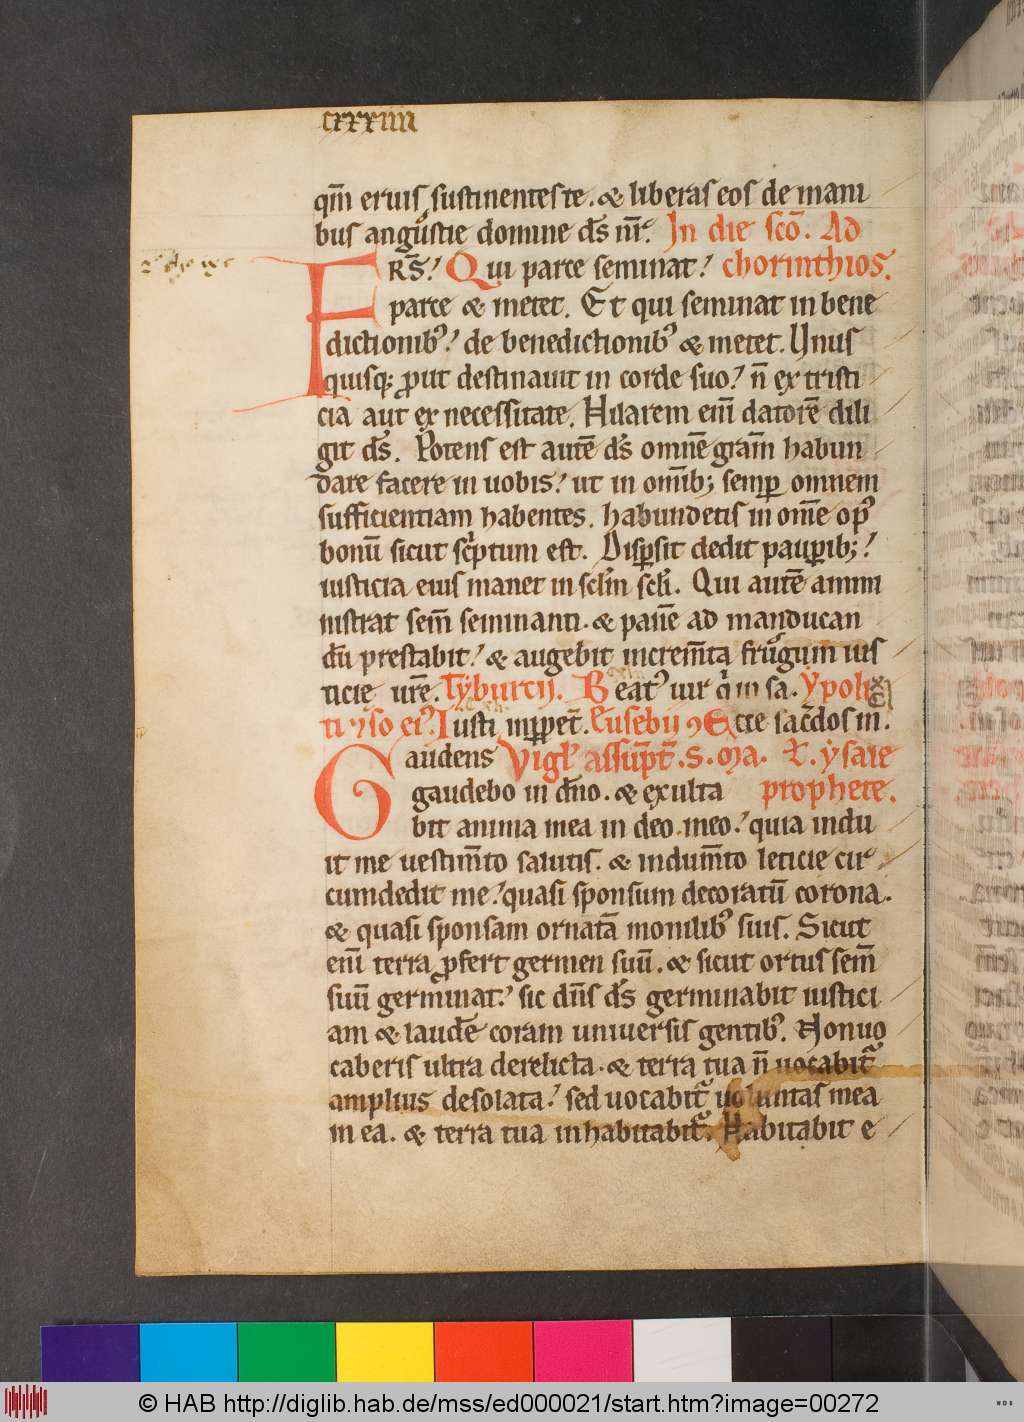 cxxxiiii
qm̄ eruis sustinentes te. & liberas eos de mani
bus angustie domine ds̄ nr̄. In die sc̄o. Ad
FRS̄! Qui parce seminat! chorinthios.
parce & metet. Et qui seminat in bene
dictionib9! de benedictionib9 & metet. Unus
quisq; ꝓut destinauit in corde suo! n̄ ex tristi
cia aut ex necessitate. Hilarem eni᷒ datorē dili
git ds̄. Potens est autē ds̄ omnē grām habun
dare facere in uobis! ut in omīb; semꝑ omnem
sufficientiam habentes. habundetis in om̄e op9
bonū sicut scͥptum est. Dispͥsit dedit pauꝑib;!
iusticia eius manet in sc̄lm sc̄li. Qui autē ammi
nistrat sem̄ seminanti. & panē ad manducan
dū prestabit! & augebit increm̄ta frugum ius
ticie ur̄e. Tyburcij. Beat9 uir qͥ in sa. Ypoli
ti ⁊ so ei9. Iusti inꝑpet̄. Eusebij ꝯ Ecce sac̄dos m̄.
Gaudens Vigl᷒ assūpt̄. S. Ma. L̄. ysaie
gaudebo in dn̄o. & exulta prophete.
bit anima mea in deo meo! quia indu
it me uestim̄to salutis. & indum̄to leticie cir
cumdedit me! quasi sponsum decoratū corona.
& quasi sponsam ornatā monilib9 suis. Sicut
eni᷒ terra ꝓfert germen suū. & sicut ortus sem̄
suū germinat! sic dn̄s ds̄ germinabit iustici
am & laudē coram uniuersis gentib9. Non uo
caberis ultra derelicta. & terra tua n̄ uocabit᷑
amplius desolata! sed uocabit᷑ uoluntas mea
in ea. & terra tua inhabitabit᷑. Habitabit e
© HAB http://diglib.hab.de/mss/ed000021/start.htm?image=00272